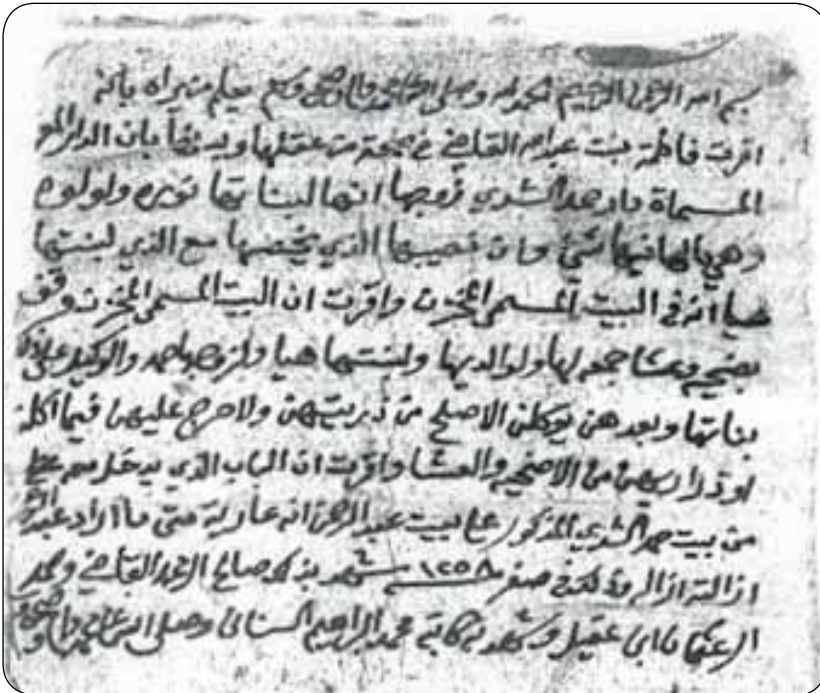 بسم الله الرحمن الرحيم الحمد لله وصلى الله على محمد واله وصحبه وسلم يعلم من يراه بانه
اقرت فاطمة بنت عبدالله القاضي في صحة من عقلها وبدنها بان الدار
المسماة دار حمد الشدي زوجها انها لبناتها نوره ولولوه
وهي مالها فيها شي وان نصيبها الذي يخصها مع الذي لبنتها
هيا انه في البيت المسمى المخزن واقرت ان البيت المسمى المخزن وقف
بضحيه وعشا جمعه لها ولوالديها ولبنتها هيا ولزوجها حمد والوكيل على ذلك
بناتها وبعدهن يوكلن الاصلح من ذريتهن ولا حرج عليهن فيما اكلن
او من الاضحيه والعشا واقرت ان الباب الذي يدخل معه
من بيت حمد الشدي المذكور على بيت عبدالرحمن انه عارية متى ما اراد
ازالته ازاله وذلك في صفر ١٢٥٨ شهد بذلك صالح القاضي
ابن عقيل وشهد به كاتبه محمد البراهيم السناني وصلى الله على محمد واله وصحبه